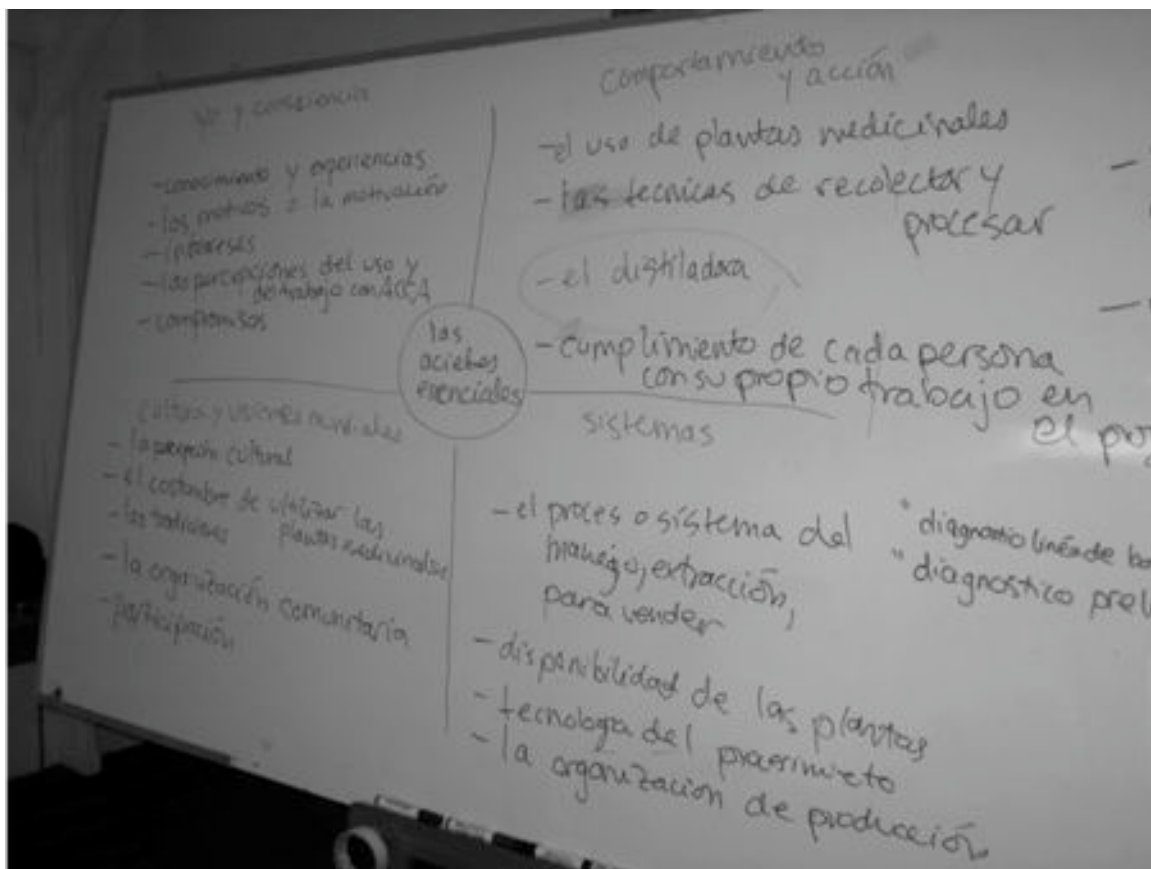 Yo y consciencia
- conocimiento y experiencias
- los motivos = la motivación
- intereses
- las percepciones del uso y
del trabajo con ACCA
- compromisos
comportamiento
y acción
- el uso de plantas medicinales
- las tecnicas de recolectar y
procesar
- el distiladora
- cumplimiento de cada persona
con su propio trabajo en
el
las
acietes
esenciales
cultura y visiones mundiales
- la percepción cultural
- el costumbre de utilizar las
plantas medicinales
- las tradiciones
- la organización comunitaria
- participación
sistemas
- el proces o sistema del
manejo, extracción,
para vender
- disponibilidad de las plantas
- tecnologia del
- la organización de producción
"diagnostico linea de
"diagnostico